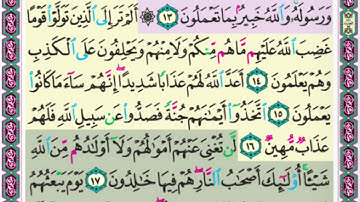 وَرَسُولَهُۥۚ وَٱللَّهُ خَبِيرُۢ بِمَا تَعۡمَلُونَ ١٣ ۞ أَلَمۡ تَرَ إِلَى ٱلَّذِينَ تَوَلَّوۡاْ قَوۡمًا
غَضِبَ ٱللَّهُ عَلَيۡهِم مَّا هُم مِّنكُمۡ وَلَا مِنۡهُمۡ وَيَحۡلِفُونَ عَلَى ٱلۡكَذِبِ
وَهُمۡ يَعۡلَمُونَ ١٤ أَعَدَّ ٱللَّهُ لَهُمۡ عَذَابٗا شَدِيدًاۖ إِنَّهُمۡ سَآءَ مَا كَانُواْ
يَعۡمَلُونَ ١٥ ٱتَّخَذُوٓاْ أَيۡمَٰنَهُمۡ جُنَّةٗ فَصَدُّواْ عَن سَبِيلِ ٱللَّهِ فَلَهُمۡ
عَذَابٞ مُّهِينٞ ١٦ لَّن تُغۡنِيَ عَنۡهُمۡ أَمۡوَٰلُهُمۡ وَلَآ أَوۡلَٰدُهُم مِّنَ ٱللَّهِ
شَيۡـًٔاۚ أُوْلَٰٓئِكَ أَصۡحَٰبُ ٱلنَّارِۖ هُمۡ فِيهَا خَٰلِدُونَ ١٧ يَوۡمَ يَبۡعَثُهُمُ